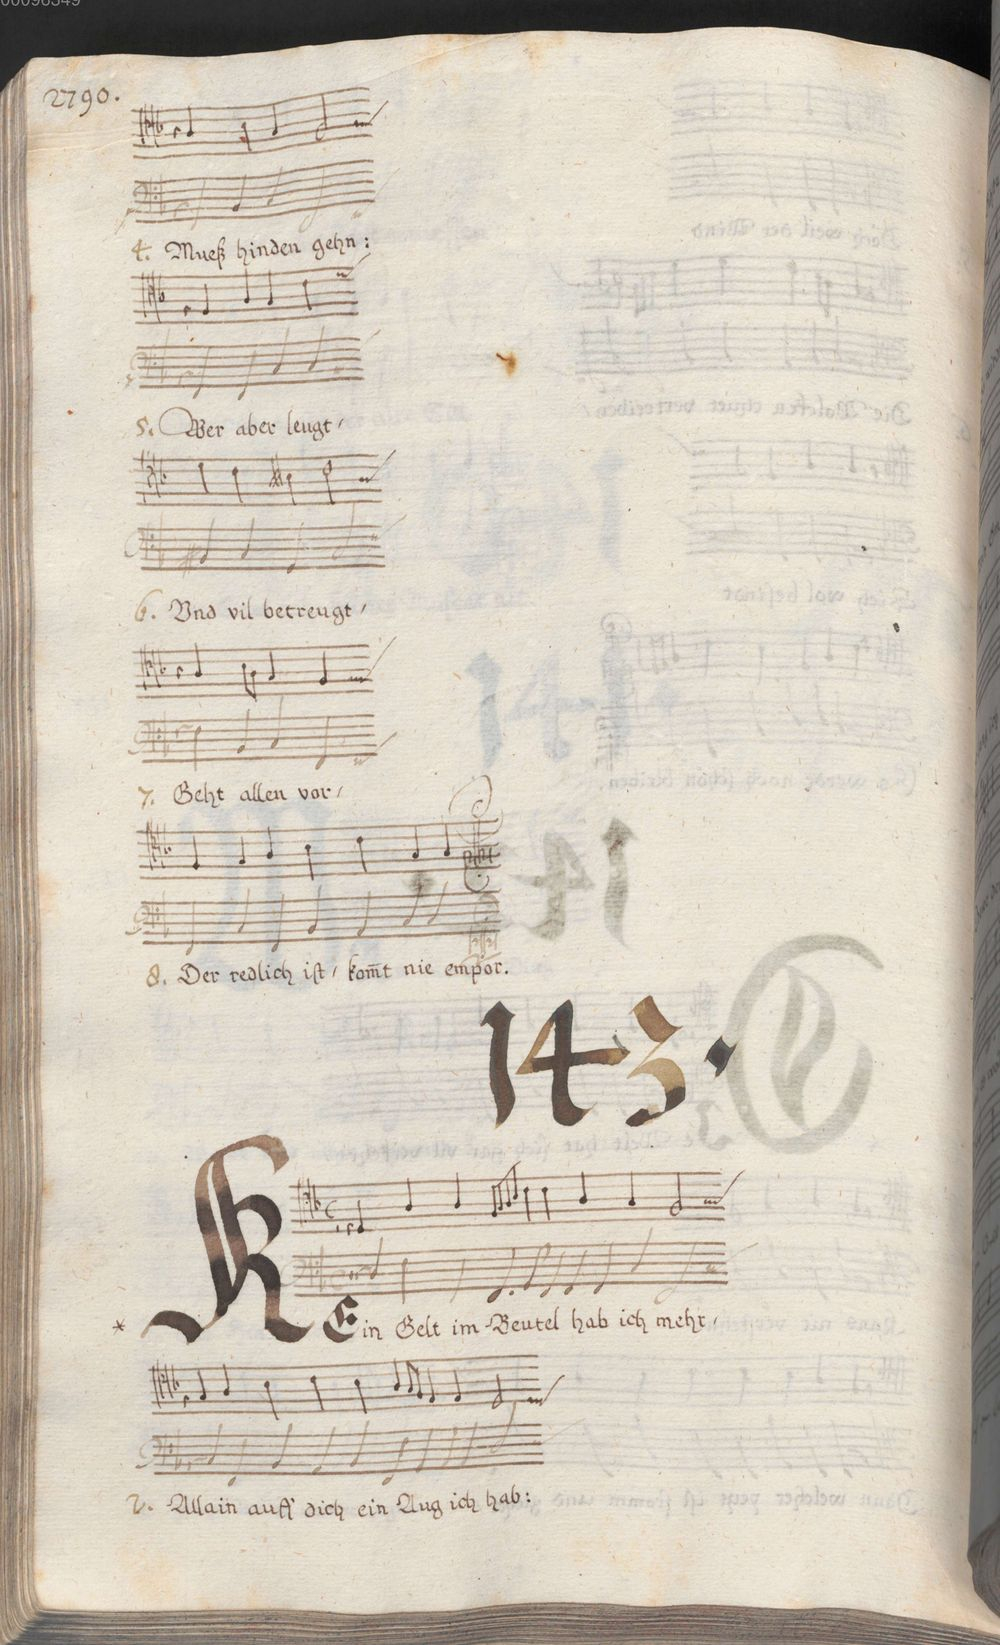 00096349
2790.
4. Mueß hinden gehn:
5. Wer aber leugt/
6. Vnd vil betreugt/
7. Geht allen vor/
8. Der redlich ist/ kom̄t nie empor.
143.
* KEin Gelt im Beutel hab ich mehr/
2. Allain auff dich ein Aug ich hab: